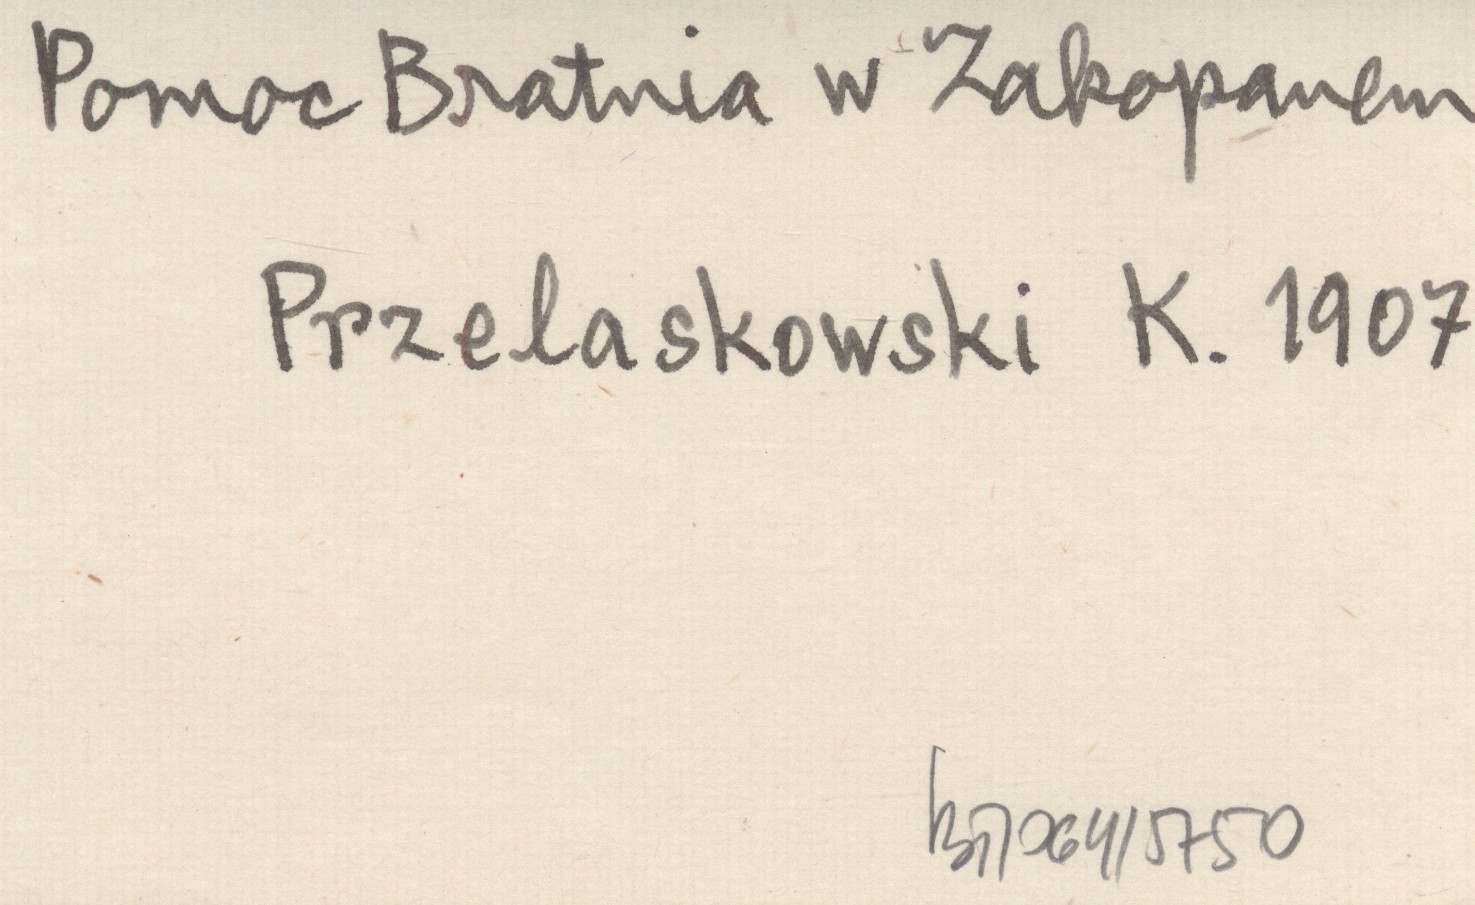 Pomoc Bratnia w Zakopanem
Przelaskowski K. 1907